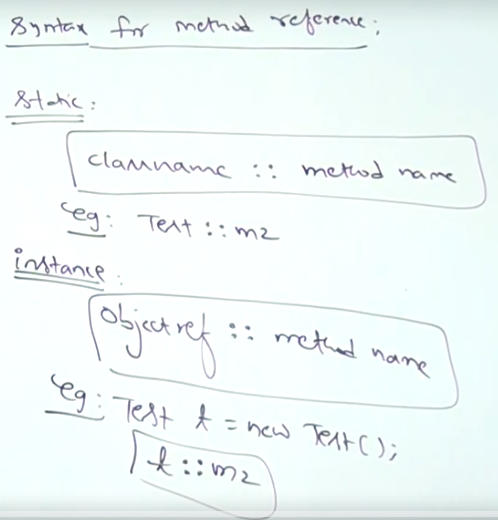 Syntax for method reference:
Static:
classname :: method name
eg: Test :: m2
instance:
Objectref :: method name
eg: Test t = new Test();
t :: m2